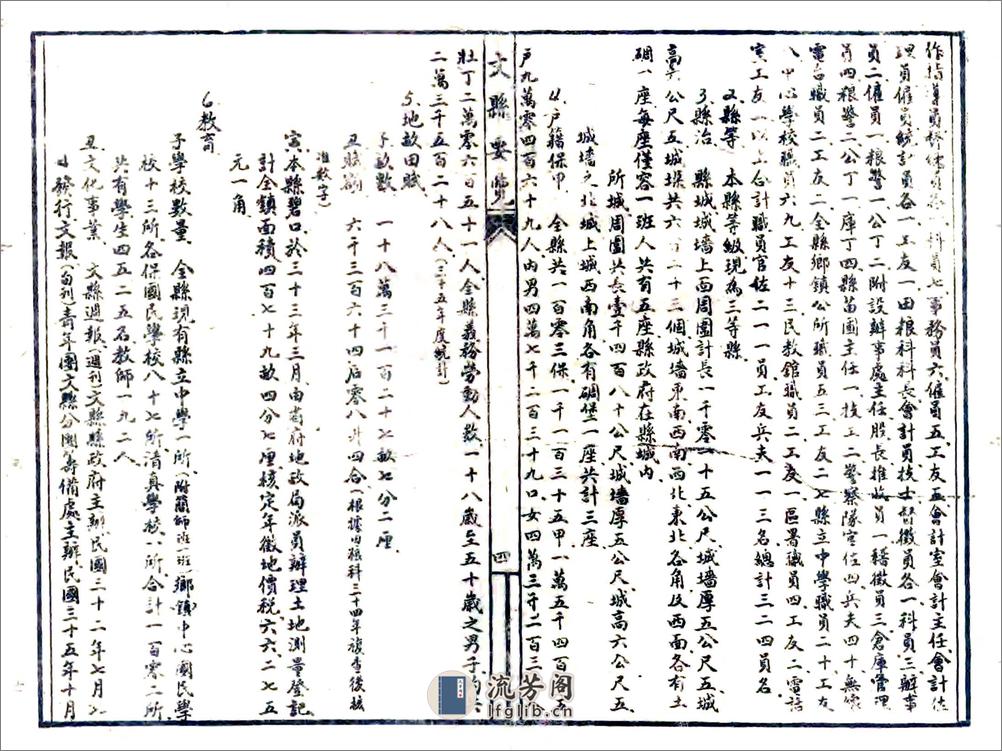 作指導員督練員各一科員七事務員六僱員五工友五會計室會計主任會計佐
理員僱員統計員各一工友一田粮科科長會計員技士督徵員各一科員三辦事
員二僱員一粮警一公丁二附設辦事處主任股長推收員一稽徵員三倉庫管理
員四粮警二公丁一庫丁四縣苗圃主任一技工二警察隊官佐四兵夫四十無線
電台職員二工友二全縣鄉鎮公所職員五三工友二七縣立中學職員二十工友
八中心學校職員六九工友十三民教館職員二工友一區署職員四工友二電話
室工友一以上合計職員官佐二一一員工友兵夫一一三名總計三二四員名
2縣等 本縣等級現為三等縣
3.縣治 縣城城墻上面周圍計長一千零一十五公尺城墻厚五公尺五城
高六公尺五城垛共六百二十三個城墻東南西南西北東北各角及西面各有土
碉一座每座僅容一班人共有五座縣政府在縣城內
所城周圍共長壹千四百八十公尺城墻厚五公尺城高六公尺五
城墻之北城上城西南角各有碉堡一座共計三座
4.戶籍保甲 全縣共一百零三保一千一百三十五甲一萬五千四百五
戶九萬零四百六十九人內男四萬七千二百三十九口女四萬三千二百三
壯丁二萬零六百五十一人全縣義務勞動人數一十八歲至五十歲之男子
二萬三千五百二十八人(三十五年度統計)
5.地畝田賦
子畝數 一十八萬三千一百二十七畝七分二厘
丑賦額 六千三百六十四石零八升四合(根據田粮科三十四年複查後核
准數字)
寅本縣碧口於三十三年三月由省府地政局派員辦理土地測量登記
計全鎮面積四百七十九畝四分七厘核定年徵地價稅六六二七五
元一角
6教育
子學校數量 全縣現有縣立中學一所(附簡師班一班)鄉鎮中心國民學
校十三所各保國民學校八十七所清真學校一所合計一百零二所
共有學生四五二五名教師一九二人
丑文化事業 文縣週報(週刊)文縣縣政府主辦民國三十二年七月
發行文報(旬刊)青年團文縣分團籌備處主辦民國三十五年十月
文縣要覽
四
流芳阁
lfglib.cn